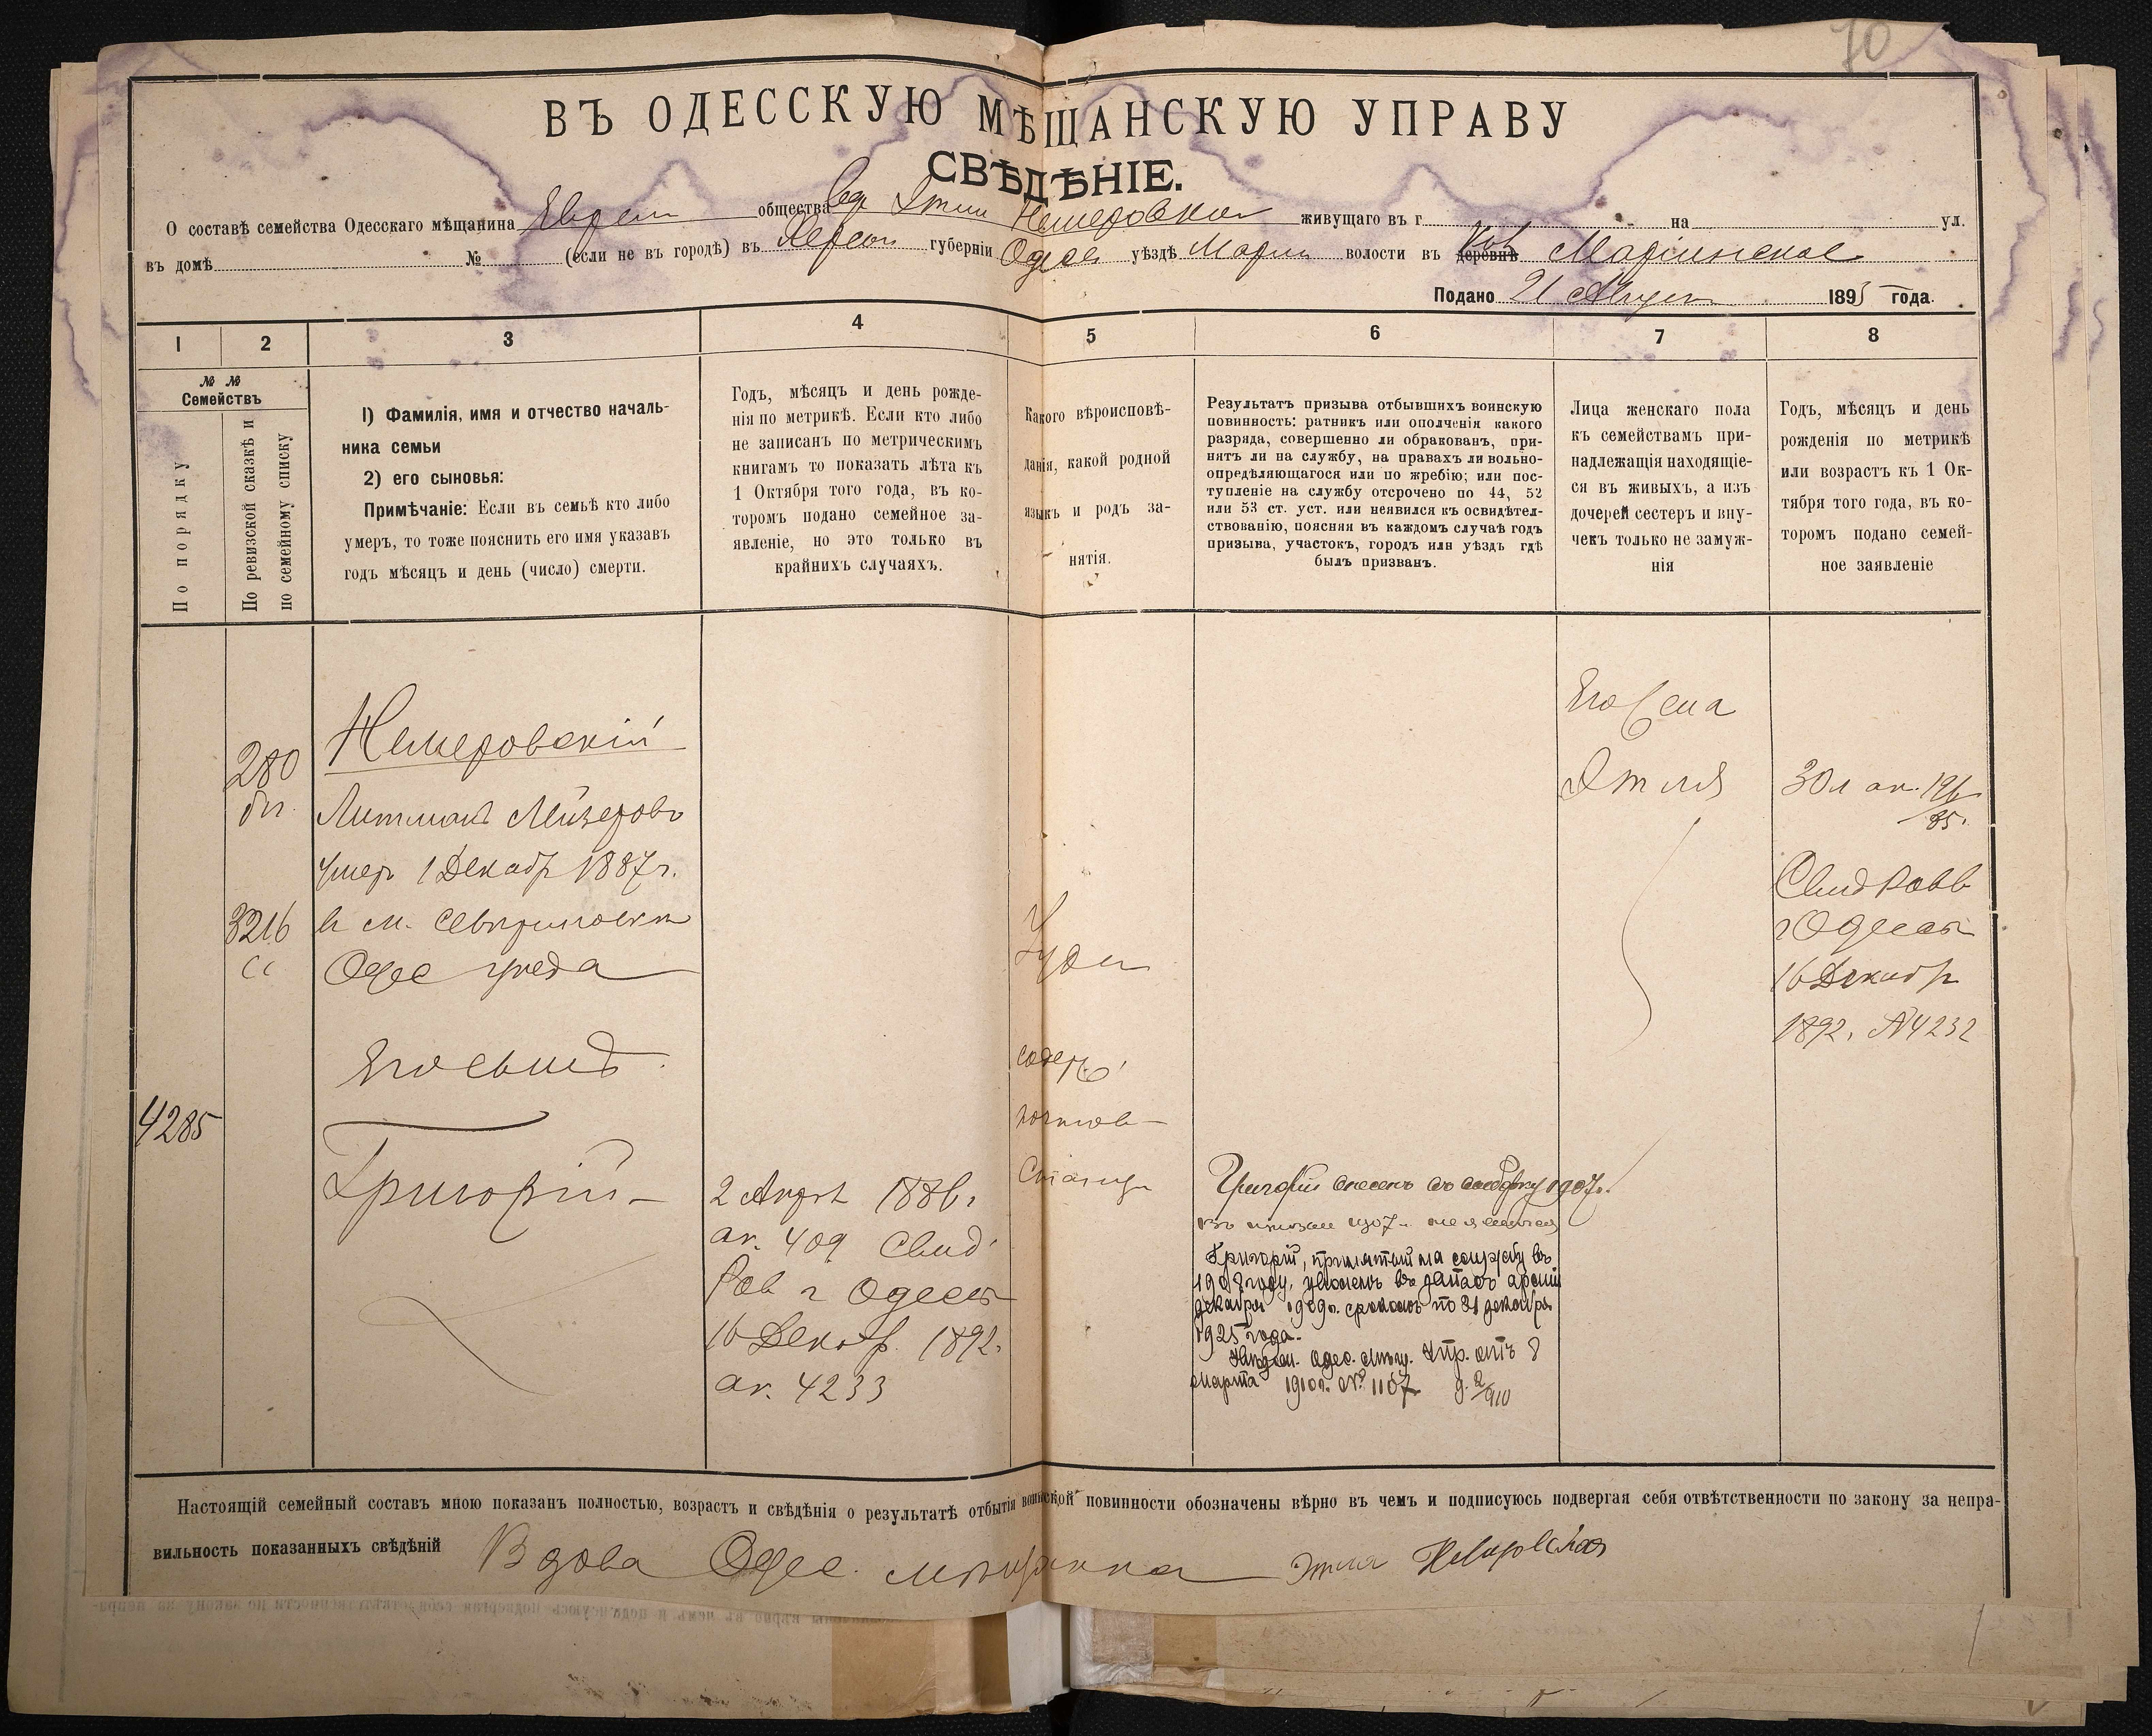 70
ВЪ ОДЕССКУЮ МѢЩАНСКУЮ УПРАВУ
СВѢДѢНІЕ.
О составѣ семейства Одесскаго мѣщанина Евреи общества вд Этли Немеровской живущаго въ г. на ул.
въ домѣ № (если не въ городѣ) въ Херсон губерніи Одесс уѣздѣ Марiи волости въ деревнѣ Маріинское
Подано 21 Август 1895 года.
1 2 3 4 5 6 7 8
№ №
Семействъ
По порядку
По ревизской сказкѣ и
по семейному списку
1) Фамилія, имя и отчество началь-
ника семьи
2) его сыновья:
Примѣчаніе: Если въ семьѣ кто либо
умеръ, то тоже пояснить его имя указавъ
годъ мѣсяцъ и день (число) смерти.
Годъ, мѣсяцъ и день рожде-
нія по метрикѣ. Если кто либо
не записанъ по метрическимъ
книгамъ то показать лѣта къ
1 Октября того года, въ ко-
торомъ подано семейное за-
явленіе, но это только въ
крайнихъ случаяхъ.
Какого вѣроисповѣ-
данія, какой родной
языкъ и родъ за-
нятія.
Результатъ призыва отбывшихъ воинскую
повинность: ратникъ или ополченія какого
разряда, совершенно ли обракованъ, при-
нятъ ли на службу, на правахъ ли вольно-
опредѣляющагося или по жребію; или пос-
тупленіе на службу отсрочено по 44, 52
или 53 ст. уст. или неявился къ освидѣтел-
ствованію, поясняя въ каждомъ случаѣ годъ
призыва, участокъ, городъ или уѣздъ гдѣ
былъ призванъ.
Лица женскаго пола
къ семействамъ при-
надлежащія находящіе-
ся въ живыхъ, а изъ
дочерей сестеръ и вну-
чекъ только не замуж-
нія
Годъ, мѣсяцъ и день
рожденія по метрикѣ
или возрастъ къ 1 Ок-
тября того года, въ ко-
торомъ подано семей-
ное заявленіе
280
3216
сс
4285
Немеровскій
Литманъ Мейзеровъ
умеръ 1 Декабр 1887 г.
в м. Севериновкѣ
Одес уѣзда
Его сынъ
Григорій
2 Апрѣл 1886 г.
ак. 409 Свид
Рав г Одессы
16 Декабр. 1892.
ак. 4233
Іудей
содерж
почтов
станци
Григорій внесенъ въ 1907 г.
въ призыв 1907 г. не явился
Григорій, принятый на службу въ
1908 году, уволенъ въ запасъ арміи
декабря 1909 г. срокомъ по 31 декабря
1925 года.
Одес. Упр. отъ 8
марта 1910 г. № 1107 д. 2/910
Его жена
Этля
30 л ак. 196/85.
Свид Равв
г Одессы
16 Декабр
1892. № 4232
Настоящій семейный составъ мною показанъ полностью, возрастъ и свѣдѣнія о результатѣ отбытія воинской повинности обозначены вѣрно въ чемъ и подписуюсь подвергая себя отвѣтственности по закону за непра-
вильность показанныхъ свѣдѣній Вдова Одес. мѣщанка Этля Немировская